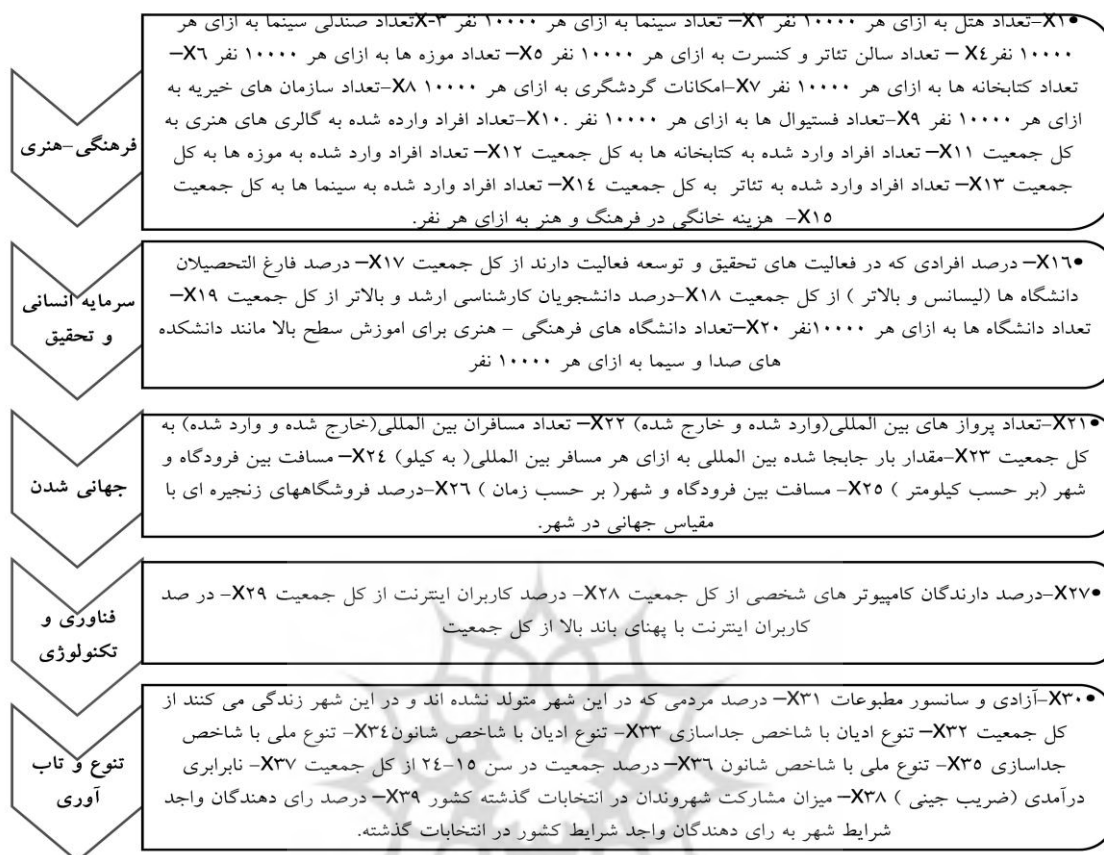 فرهنگی-هنری
•X۱-تعداد هتل به ازای هر ۱۰۰۰۰ نفر X۲– تعداد سینما به ازای هر ۱۰۰۰۰ نفر X-۳تعداد صندلی سینما به ازای هر
۱۰۰۰۰ نفرX٤ – تعداد سالن تئاتر و کنسرت به ازای هر ۱۰۰۰۰ نفر X٥– تعداد موزه ها به ازای هر ۱۰۰۰۰ نفر X٦–
تعداد کتابخانه ها به ازای هر ۱۰۰۰۰ نفر X۷-امکانات گردشگری به ازای هر ۱۰۰۰۰ X۸-تعداد سازمان های خیریه به
ازای هر ۱۰۰۰۰ نفر X۹-تعداد فستیوال ها به ازای هر ۱۰۰۰۰ نفر .X۱۰-تعداد افراد وارده شده به گالری های هنری به
کل جمعیت X۱۱– تعداد افراد وارد شده به کتابخانه ها به کل جمعیت X۱۲– تعداد افراد وارد شده به موزه ها به کل
جمعیت X۱۳– تعداد افراد وارد شده به تئاتر به کل جمعیت X۱٤– تعداد افراد وارد شده به سینما ها به کل جمعیت
X۱٥- هزینه خانگی در فرهنگ و هنر به ازای هر نفر.
سرمایه انسانی
و تحقیق
•X۱٦– درصد افرادی که در فعالیت های تحقیق و توسعه فعالیت دارند از کل جمعیت X۱۷– درصد فارغ التحصیلان
دانشگاه ها (لیسانس و بالاتر ) از کل جمعیت X۱۸-درصد دانشجویان کارشناسی ارشد و بالاتر از کل جمعیت X۱۹–
تعداد دانشگاه ها به ازای هر ۱۰۰۰۰نفر X۲۰–تعداد دانشگاه های فرهنگی - هنری برای اموزش سطح بالا مانند دانشکده
های صدا و سیما به ازای هر ۱۰۰۰۰ نفر
جهانی شدن
•X۲۱-تعداد پرواز های بین المللی(وارد شده و خارج شده) X۲۲– تعداد مسافران بین المللی(خارج شده و وارد شده) به
کل جمعیت X۲۳-مقدار بار جابجا شده بین المللی به ازای هر مسافر بین المللی( به کیلو) X۲٤– مسافت بین فرودگاه و
شهر (بر حسب کیلومتر ) X۲٥- مسافت بین فرودگاه و شهر( بر حسب زمان ) X۲٦-درصد فروشگاههای زنجیره ای با
مقیاس جهانی در شهر.
فناوری و
تکنولوژی
•X۲۷-درصد دارندگان کامپیوتر های شخصی از کل جمعیت X۲۸- درصد کاربران اینترنت از کل جمعیت X۲۹- در صد
کاربران اینترنت با پهنای باند بالا از کل جمعیت
تنوع و تاب
آوری
•X۳۰-آزادی و سانسور مطبوعات X۳۱– درصد مردمی که در این شهر متولد نشده اند و در این شهر زندگی می کنند از
کل جمعیت X۳۲– تنوع ادیان با شاخص جداسازی X۳۳- تنوع ادیان با شاخص شانونX۳٤- تنوع ملی با شاخص
جداسازی X۳٥- تنوع ملی با شاخص شانون X۳٦– درصد جمعیت در سن ۱٥-۲٤ از کل جمعیت X۳۷- نابرابری
درآمدی (ضریب جینی ) X۳۸– میزان مشارکت شهروندان در انتخابات گذشته کشور X۳۹– درصد رای دهندگان واجد
شرایط شهر به رای دهندگان واجد شرایط کشور در انتخابات گذشته.